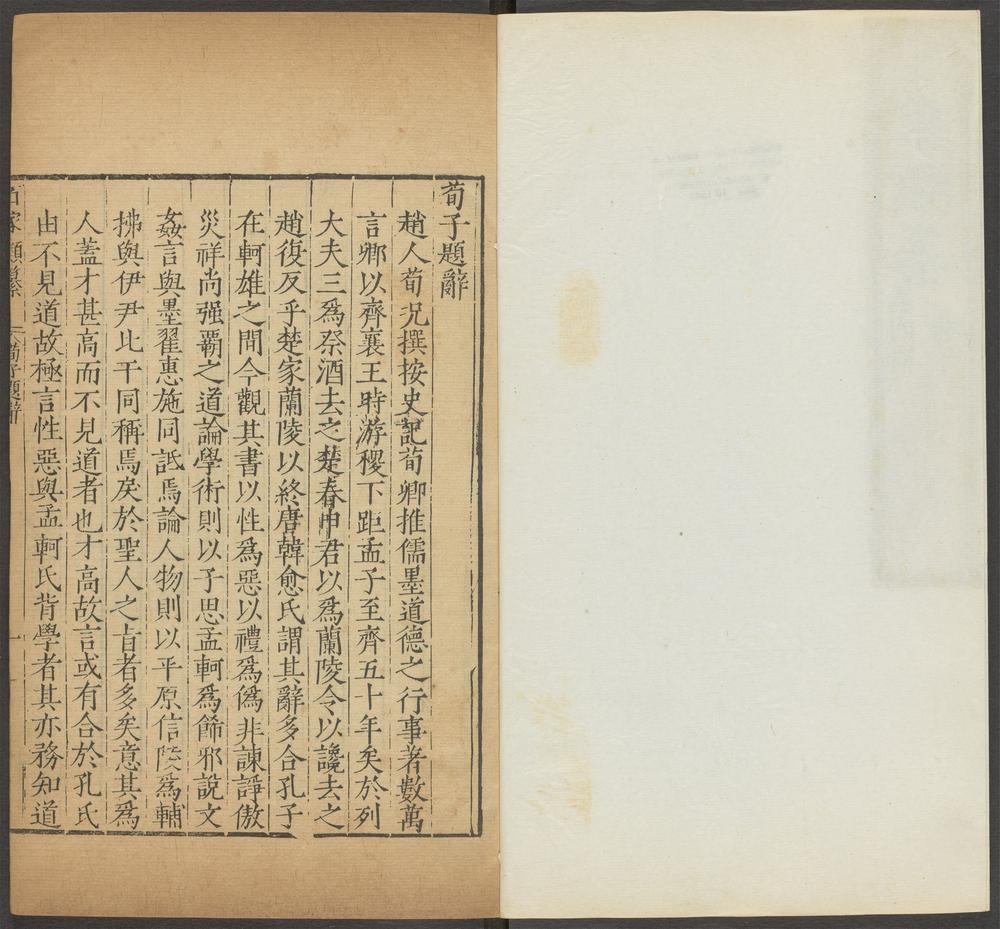 荀子題辭
趙人荀況撰按史記荀卿推儒墨道德之行事著數萬
言卿以齊襄王時游稷下距孟子至齊五十年矣於列
大夫三爲祭酒去之楚春申君以爲蘭陵令以讒去之
趙復反乎楚家蘭陵以終唐韓愈氏謂其辭多合孔子
在軻雄之間今觀其書以性爲惡以禮爲僞非諫諍傲
災祥尚强霸之道論學術則以子思孟軻爲飾邪說文
姦言與墨翟惠施同詆焉論人物則以平原信陵爲輔
拂與伊尹比干同稱焉戾於聖人之旨者多矣意其爲
人蓋才甚高而不見道者也才高故言或有合於孔氏
由不見道故極言性惡與孟軻氏背學者其亦務知道
百家類纂 荀子題辭 一